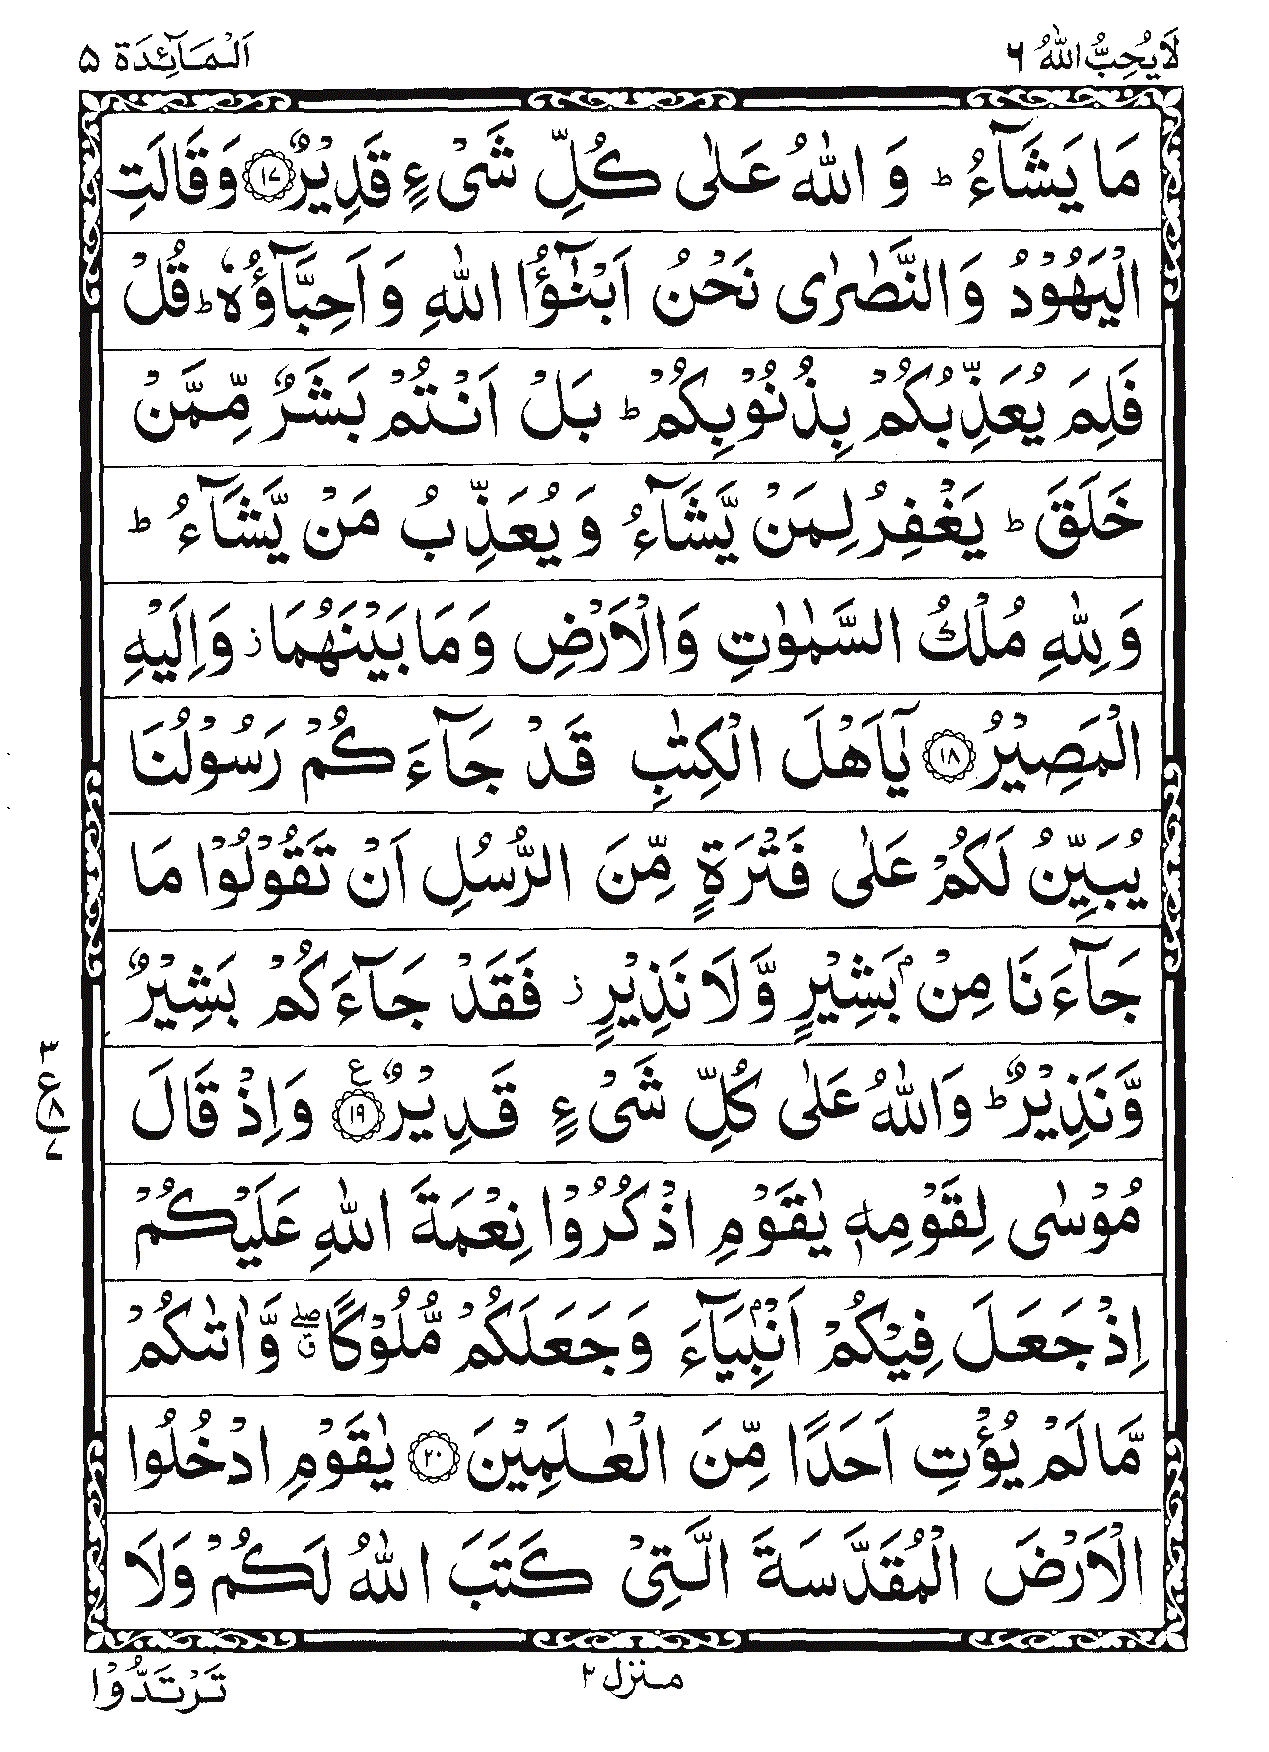 لَا یُحِبُّ اللّٰهُ ٦
اَلْمَآئِدَة ۵
مَا یَشَآءُ ؕ وَ اللّٰهُ عَلٰی كُلِّ شَیْءٍ قَدِیْرٌ ۝۱۷ وَ قَالَتِ
الْیَهُوْدُ وَ النَّصٰرٰی نَحْنُ اَبْنٰٓؤُا اللّٰهِ وَ اَحِبَّآؤُهٗ ؕ قُلْ
فَلِمَ یُعَذِّبُكُمْ بِذُنُوْبِكُمْ ؕ بَلْ اَنْتُمْ بَشَرٌ مِّمَّنْ
خَلَقَ ؕ یَغْفِرُ لِمَنْ یَّشَآءُ وَ یُعَذِّبُ مَنْ یَّشَآءُ ؕ
وَ لِلّٰهِ مُلْكُ السَّمٰوٰتِ وَ الْاَرْضِ وَ مَا بَیْنَهُمَا ؗ وَ اِلَیْهِ
الْمَصِیْرُ ۝۱۸ یٰۤاَهْلَ الْكِتٰبِ قَدْ جَآءَكُمْ رَسُوْلُنَا
یُبَیِّنُ لَكُمْ عَلٰی فَتْرَةٍ مِّنَ الرُّسُلِ اَنْ تَقُوْلُوْا مَا
جَآءَنَا مِنْۢ بَشِیْرٍ وَّ لَا نَذِیْرٍ ؗ فَقَدْ جَآءَكُمْ بَشِیْرٌ
وَّ نَذِیْرٌ ؕ وَ اللّٰهُ عَلٰی كُلِّ شَیْءٍ قَدِیْرٌ ۝۱۹ ع وَ اِذْ قَالَ
۳
ع ۸
۷
مُوْسٰی لِقَوْمِهٖ یٰقَوْمِ اذْكُرُوْا نِعْمَةَ اللّٰهِ عَلَیْكُمْ
اِذْ جَعَلَ فِیْكُمْ اَنْۢبِیَآءَ وَ جَعَلَكُمْ مُّلُوْكًا ۖۗ وَّ اٰتٰىكُمْ
مَّا لَمْ یُؤْتِ اَحَدًا مِّنَ الْعٰلَمِیْنَ ۝۲۰ یٰقَوْمِ ادْخُلُوا
الْاَرْضَ الْمُقَدَّسَةَ الَّتِیْ كَتَبَ اللّٰهُ لَكُمْ وَ لَا
منزل ۲
تَرْتَدُّوْا